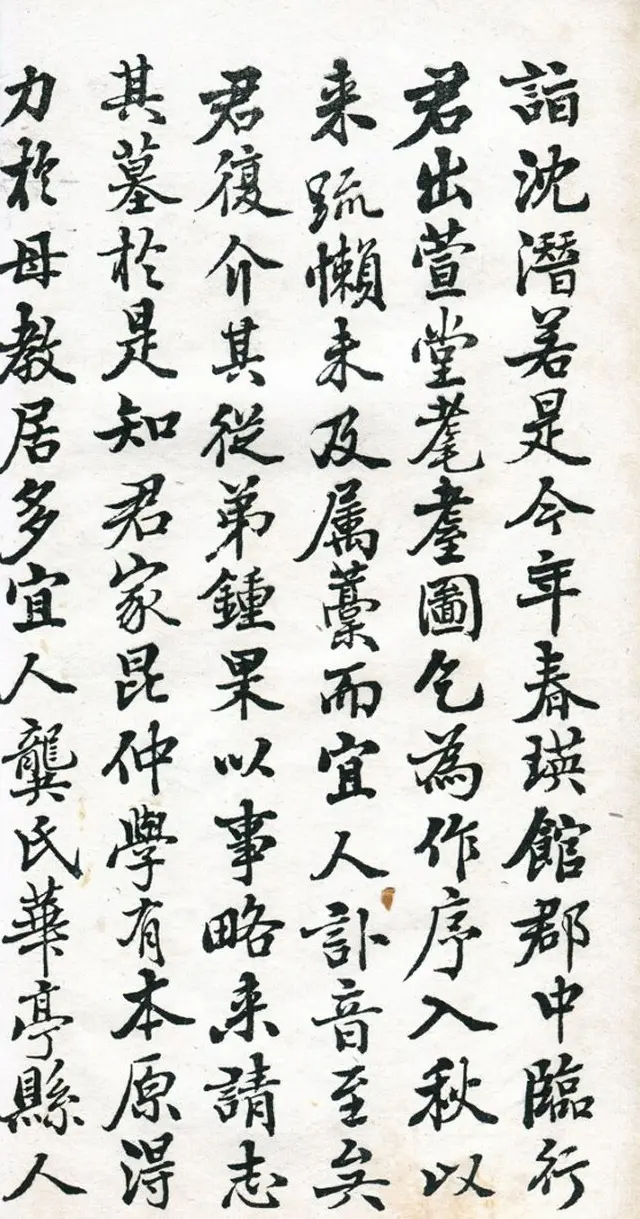 詣沈潛若是今年春瑛館郡中臨行
君出萱堂耄耋圖乞為作序入秋以
来踈懶未及属藁而宜人訃音至矣
君復介其從弟鍾果以事略来請志
其墓於是知君家昆仲學有本原得
力於母教居多宜人龔氏華亭縣人